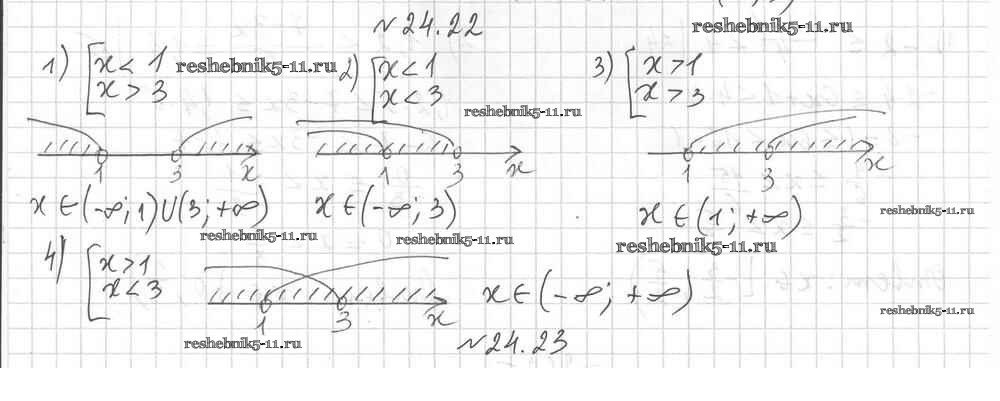 №24.22 reshebnik5-11.ru
1) [ x < 1 reshebnik5-11.ru 2) [ x < 1 3) [ x > 1
x > 3 x < 3 reshebnik5-11.ru x > 3
1 3 x 1 3 x 1 3 x
x ∈ (-∞; 1) U (3; +∞) x ∈ (-∞; 3) x ∈ (1; +∞) reshebnik5-11.ru
reshebnik5-11.ru reshebnik5-11.ru reshebnik5-11.ru
4) [ x > 1
x < 3 x ∈ (-∞; +∞)
1 3 x reshebnik5-11.ru
reshebnik5-11.ru №24.23